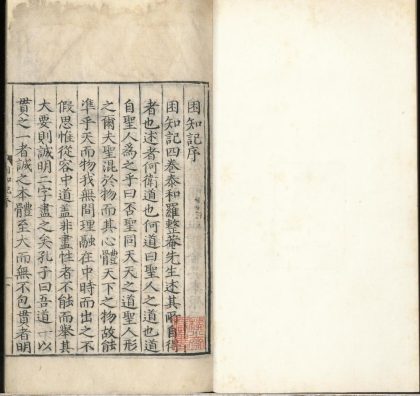 困知記序
困知記四卷泰和羅整菴先生述其所自得
者也述者何衛道也何道曰聖人之道也道
自聖人為之乎曰否聖同天天之道聖人形
之爾夫聖混於物而其心體天下之物故能
準乎天而物我無間理融在中時而出之不
假思惟從容中道盖非盡性者不能而舉其
大要則誠明二字盡之矣孔子曰吾道一以
貫之一者誠之本體至大而無不包貫者明